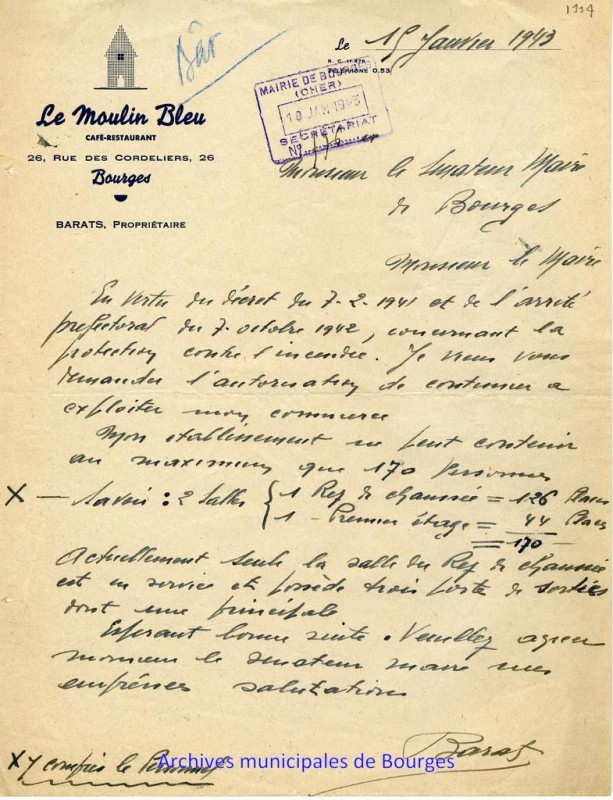 1114
Bar
Le 15 Janvier 1943
TÉLÉPHONE 0.53
MAIRIE DE BOURGES
(CHER)
18 JAN 1943
SECRÉTARIAT
N°
Le Moulin Bleu
CAFÉ-RESTAURANT
26, RUE DES CORDELIERS, 26
Bourges
BARATS, PROPRIÉTAIRE
Monsieur le Senateur Maire
de Bourges
Monsieur le Maire
En vertu du décret du 7-2-1941 et de l'arrité
prefectoral du 7 octobre 1942, concernant la
protection contre l'incendie. Je viens vous
demander l'autorisation de continuer a
exploiter mon commerce
Mon etablissement ne peut contenir
au maximum que 170 Personnes
X — Savoir : 2 Salles { 1 Rez de chaussée = 126 Places
1 - Premier étage = 44 Places
= 170 —
Actuellement seule la salle du Rez de chaussée
est en service et possède trois porte de sorties
dont une principale
Esperant bonne suite. Veuillez agreer
monsieur le senateur maire mes
empréssées salutations
Barats
X y compris le Personnel
Archives municipales de Bourges